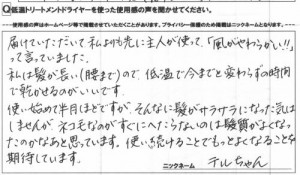 Q低温トリートメントドライヤーを使った使用感の声を聞かせてください。
使用感の声はホームページ等で掲載させていただくことがあります。プライバシー保護のため掲載はニックネームとなります。
届けていただいて私よりも先に主人が使って、「風がやわらかい!!」
って言っていました。
私は髪が長い(腰まで)ので低温で今までと変わらずの時間
で乾かせるのがいいです。
使い始めて半月ほどですが、そんなに髪がサラサラになった気は
しませんが、ネコ毛なのがすぐにへたらないのは髪質がよくなっ
たのかなあと思っています。使い続けることでもっとよくなることを
期待しています。
ニックネーム テルちゃん